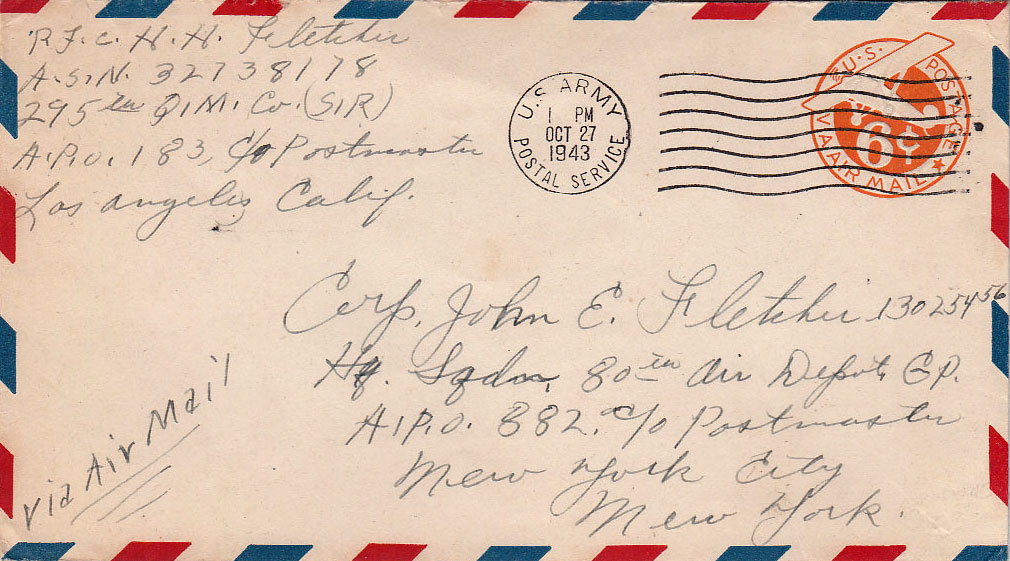 Pfc. H. H. Fletcher
A.S.N. 32738178
295th Q.M. Co. (S.R)
A.P.O. 183, c/o Postmaster
Los Angeles Calif.
U.S. ARMY
1 PM
OCT 27
1943
POSTAL SERVICE
U.S. POSTAGE
6¢
VIA AIR MAIL
Corp. John E. Fletcher 13025456
Hq. Sqdn, 80th Air Depot GP.
A.P.O. 882. c/o Postmaster
New York City
New York.
Via Air Mail